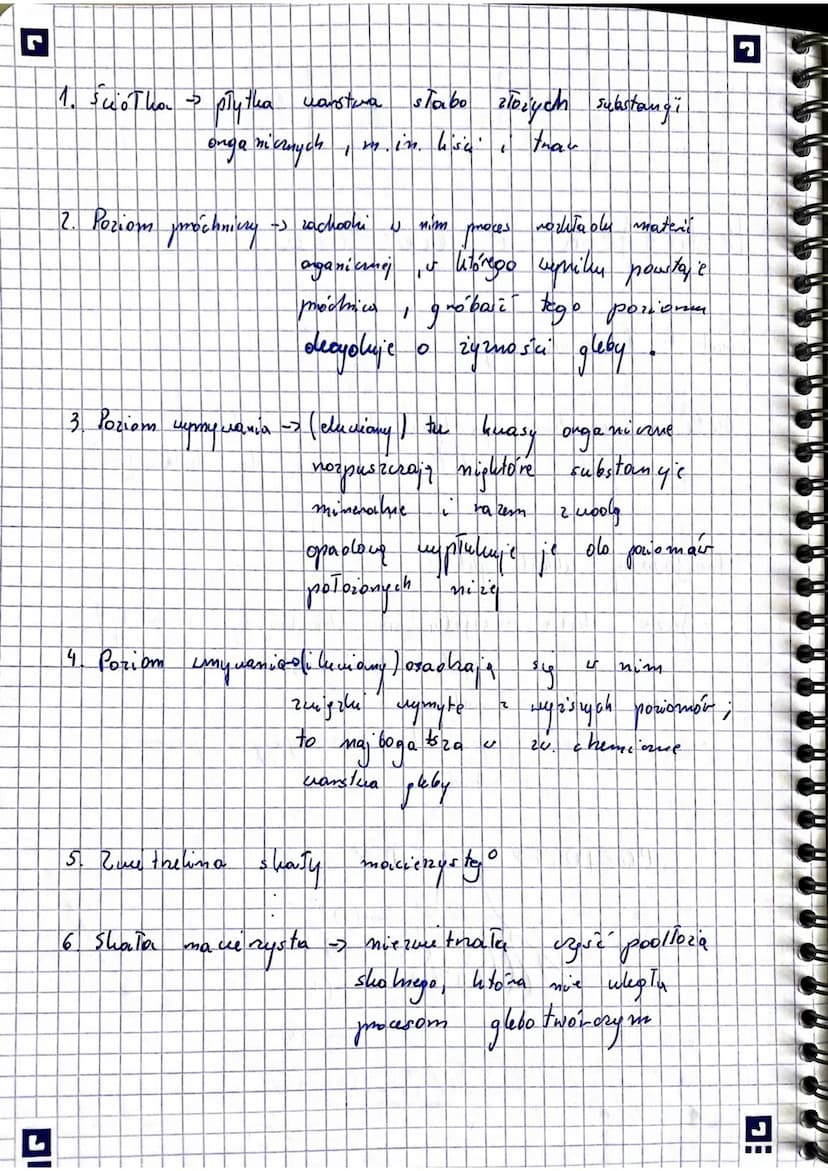 1. ściółka → płytka warstwa słabo złożych substancji
organicznych, m.in. liści i traw
2. Poziom próchniczy → zachodzi w nim proces rozkładu materii
organicznej, w którego wyniku powstaje
próchnica, grubość tego poziomu
decyduje o żyzności gleby.
3. Poziom wymywania → (eluwiany) tu kwasy organiczne
rozpuszczają niektóre substancje
mineralne i razem z wodą
opadową wypłukuje je do poziomów
położonych niżej
4. Poziom wmywania → (iluwiany) osadzają się w nim
związki wymyte z wyższych poziomów;
to najbogatsza w zw. chemiczne
warstwa gleby
5. Zwietrzelina skały macierzystego
6. Skała macierzysta → niezwietrzała część podłoża
skalnego, która nie uległa
procesom glebotwórczym